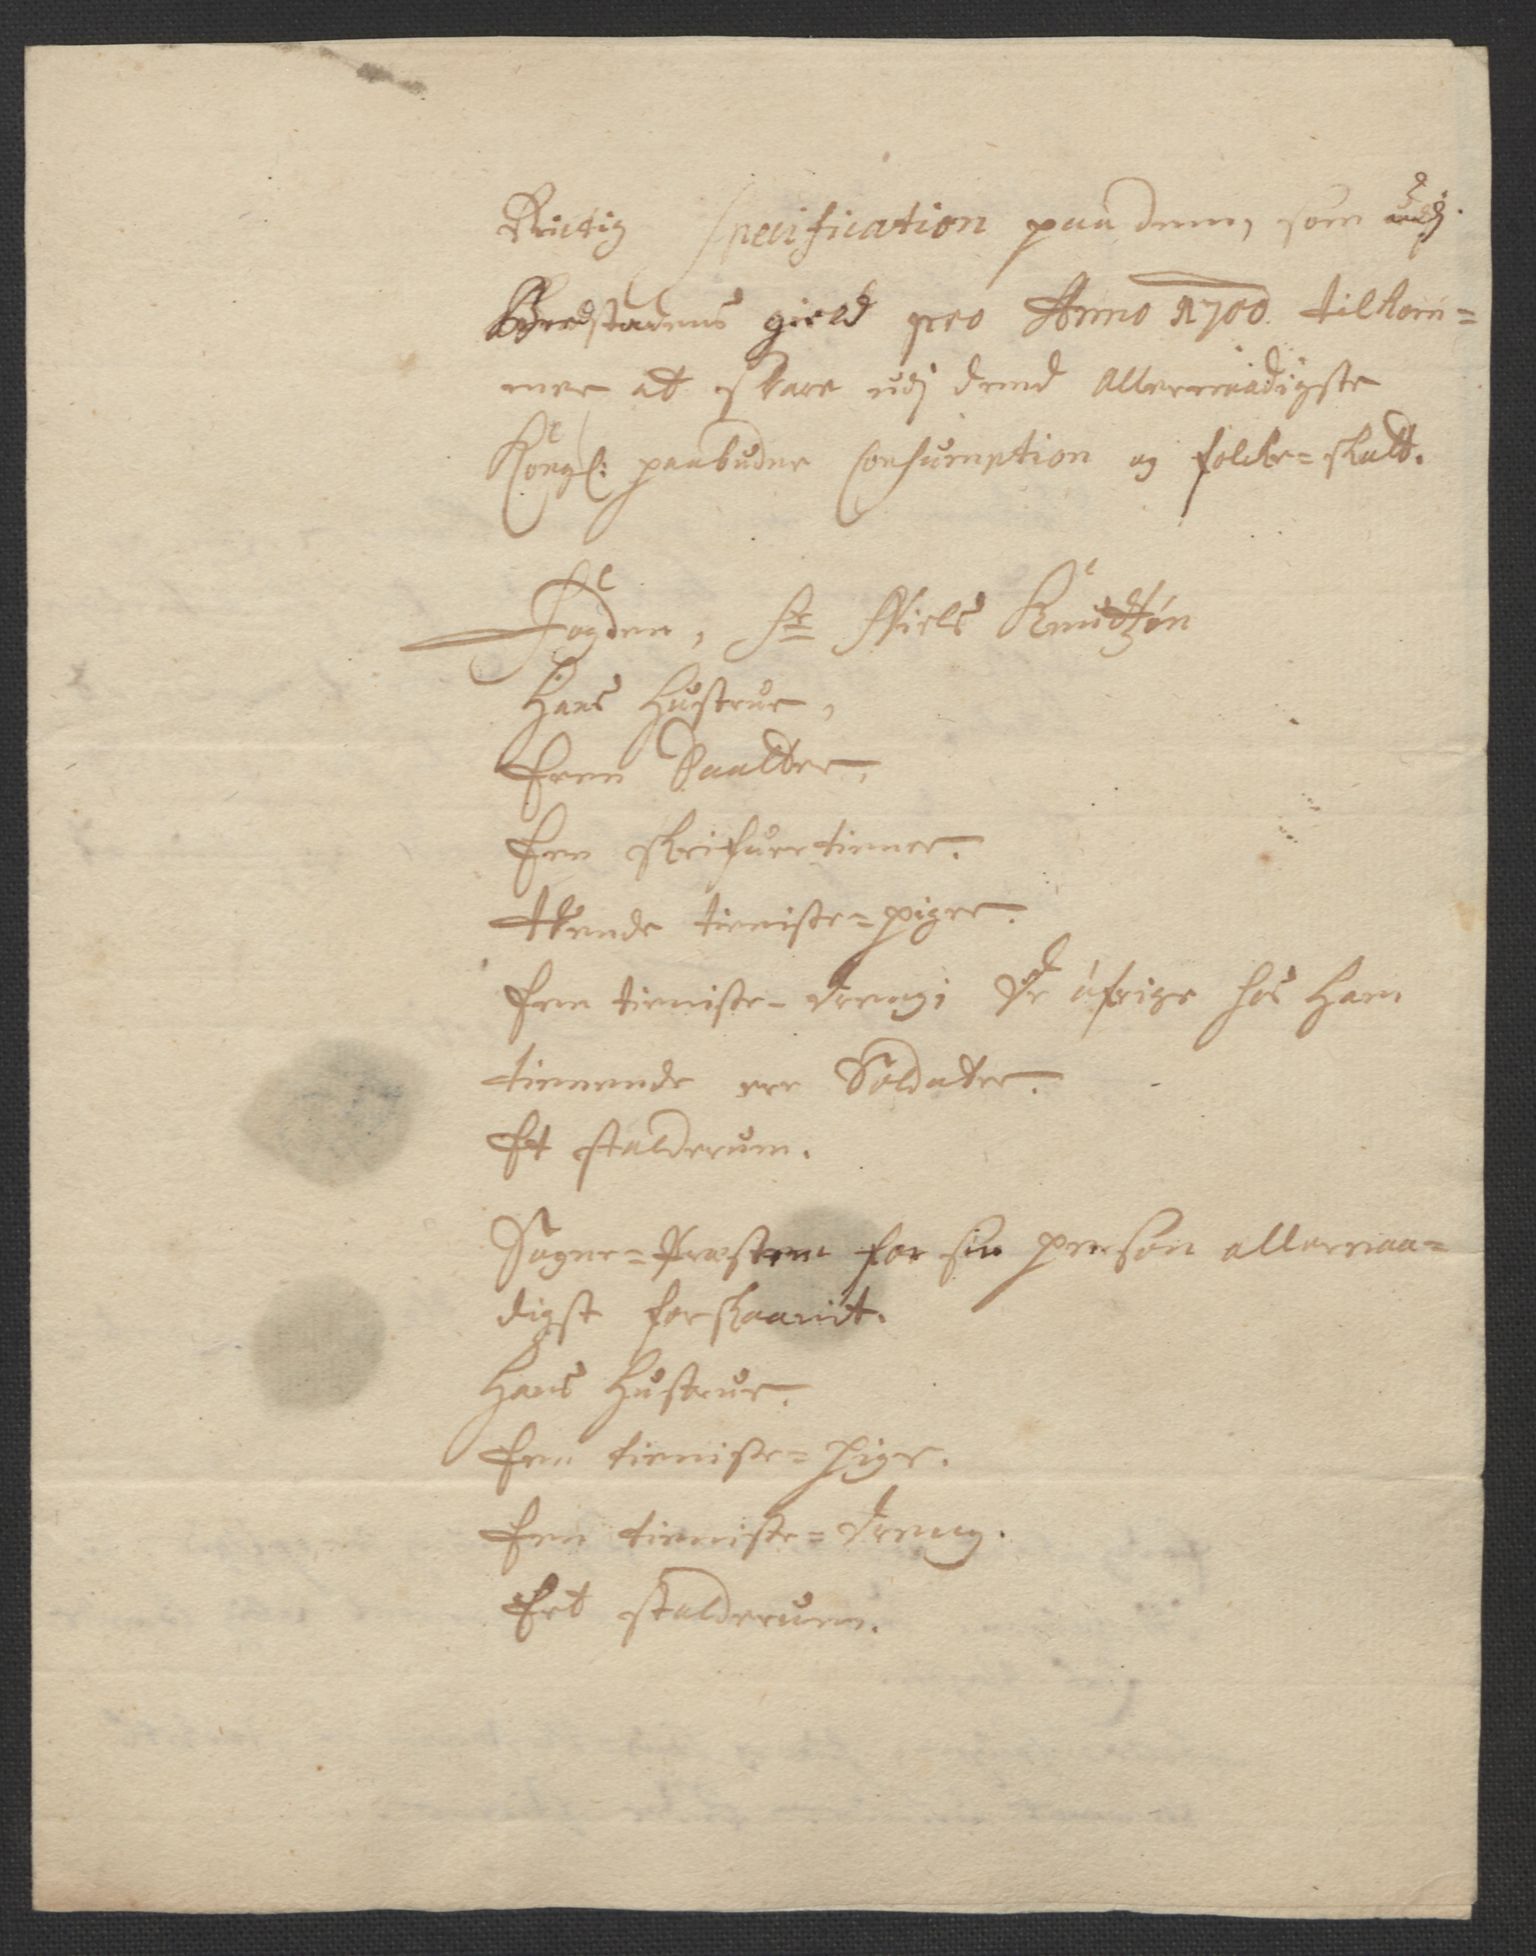 Rictig Specification paa dem, som udj
Bredstadens gield pro Anno 1700 tilkom=
mer at svare udj dend Allernaadigste
Kongl: paabudne Consumption og folcke=skatt.
Fogden, Sr Niels Knudtzøn
Hans Hustrue,
Een Daatter,
Een skrifuertienner.
Tvende tieniste=piger.
Een tieniste=dreng; De øfrige hos Ham
tienende ere Soldater.
Et stalderum.
Sogne=Præsten for sin person allernaa=
digst forskaanit.
Hans Hustrue.
Een tieniste=Pige.
Een tieniste=dreng.
Eet stalderum.